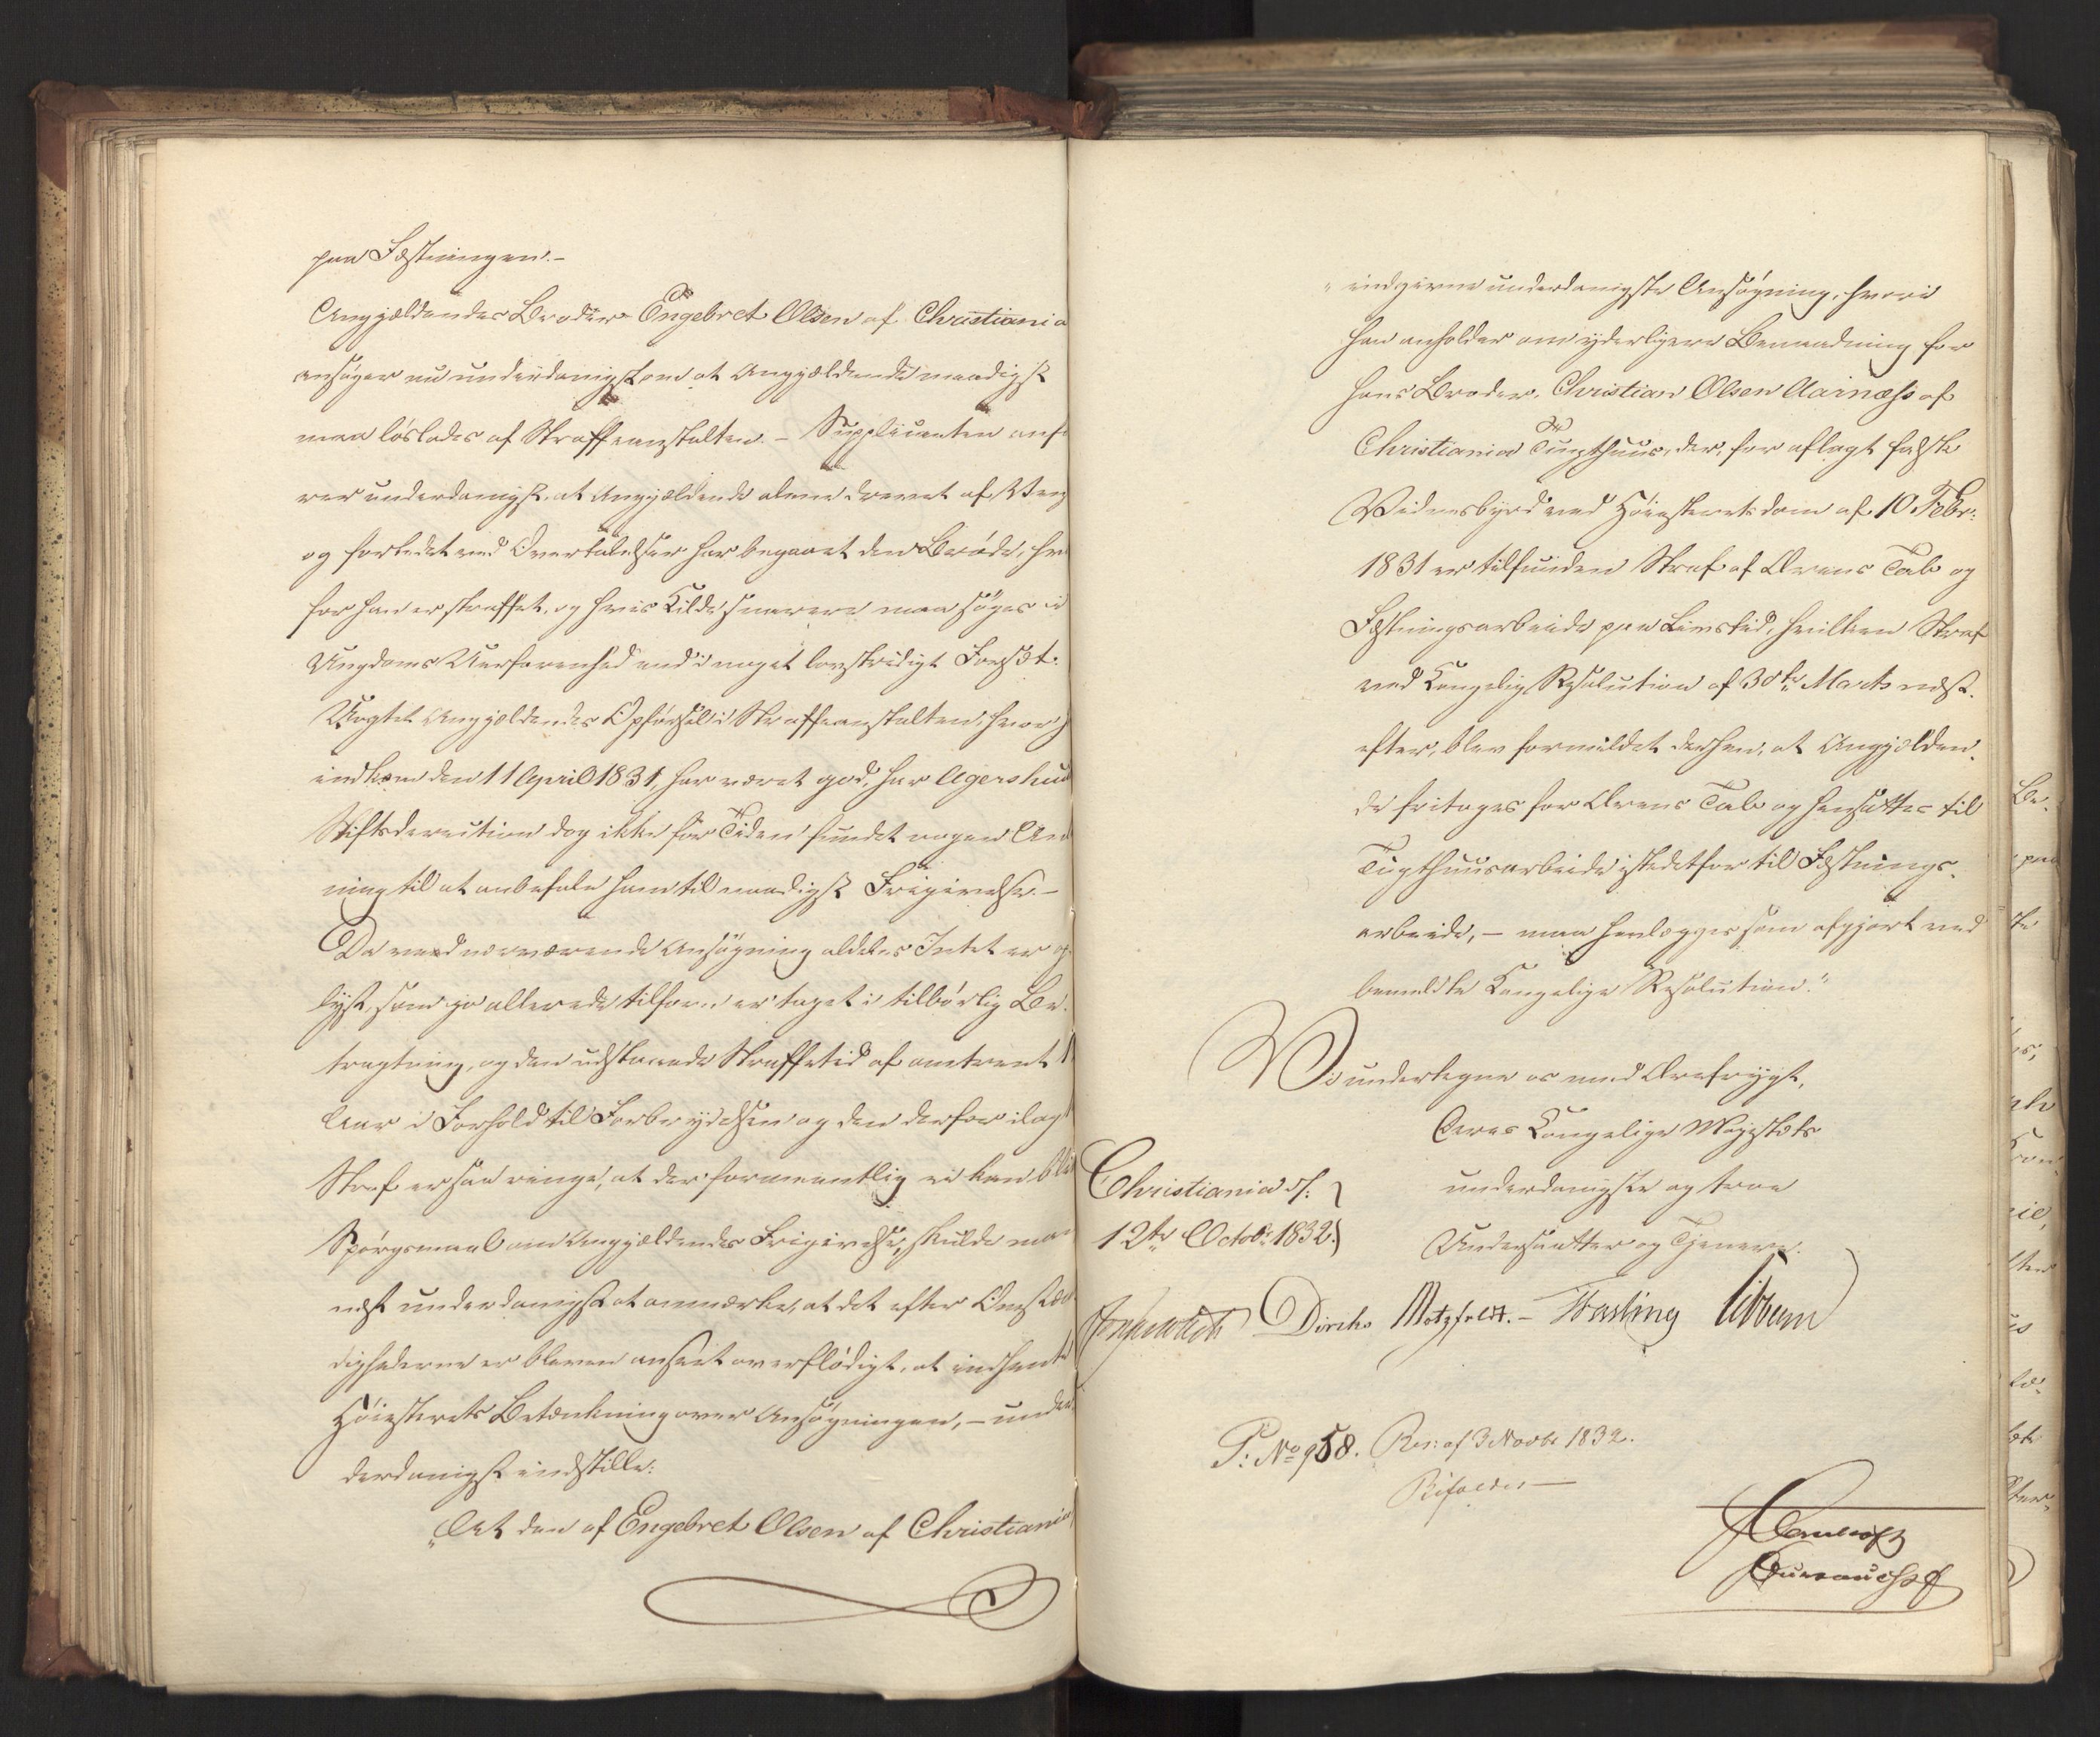 paa Fæstningen.-
Angjældendes Broder Engebret Olsen af Christiania
ansøger nu underdanigst om at Angjældende naadigst
maa løslades af Straffeanstalten. - Supplicanten anfø
rer underdanigst, at Angjældende alene drevet af Trang
og forledet ved Overtalelser har begaaet den Brøde, hvor
for han er straffet, og hvis Kilde snarere maa søges i
Ungdoms Uerfarenhed end i noget lovstridigt Forsæt.
Uagtet Angjældendes Opførsel i Straffeanstalten, hvor
indkom den 11 April 1831, har været god, har Agershuus
Stiftsdirection dog ikke for Tiden fundet nogen An
ning til at anbefale ham til naadigst Frigivelse.-
Da ved nærværende Ansøgning aldeles Intet er op
lyst, som jo allerede tilforn er taget i tilbørlig Be-
tragtning, og den udstaaede Straffetid af omtrent 1
Aar i Forhold til Forbrydelsen og den derfor ilagte
Straf er saa ringe, at der formeentlig ei kan blive
Spørgsmaal om Angjældendes Frigivelse, skulde man
næst underdanigst at anmærke, at det efter Omstæn
dighederne er bleven anseet overflødigt, at indhente
Høiesterets Betænkning over Ansøgningen, - under
derdanigst indstille:
"At den af Engebret Olsen af Christiania
" indgivne underdanigste Ansøgning, hvori
han anholder om yderligere Benaadning for
hans Broder, Christian Olsen Aarnæss af
Christiania Tugthuus, der, for aflagt falsk
Vidnesbyrd ved Høiesteretsdom af 10 Febr:
1831 er tilfunden Straf af Ærens Tab og
Fæstningsarbeide paa Livstid, hvilken Straf
ved Kongelig Resolution af 30te Marts næst-
efter, blev formildet derhen, at Angjælden-
de fritages for Ærens Tab og hensattes til
Tugthuusarbeide istedetfor til Fæstnings-
arbeide, - maa henlægges som afgjort ved
bemeldte Kongelige Resolution."
Vi undertegne os med Ærefrygt,
Deres Kongelige Majestæts
Christiania d:
underdanigste og troe
12te Octob: 1832.
Undersaatter og Tjenere.
Diriks Motzfeldt. - Fasting Vibbe
P: No 958. Res: af 3 Novbr 1832.
Bifaldes -